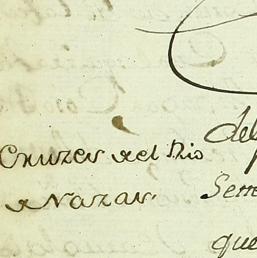 Cruzes del Rio
a Nazar
del
Sem
que